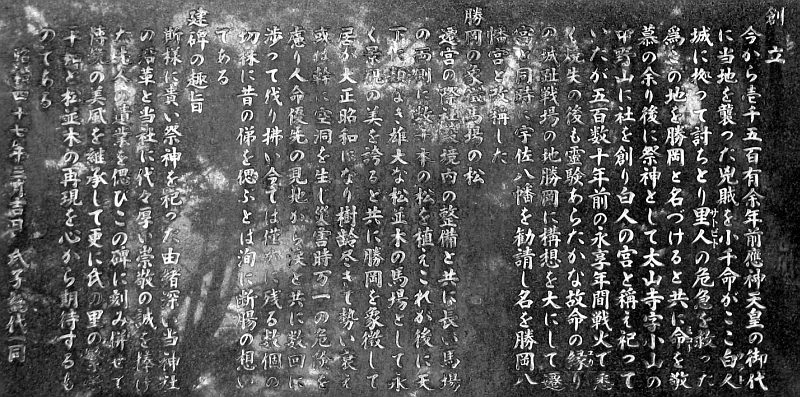 創立
今から壱千五百有余年前應神天皇の御代
に当地を襲った兇賊を小千命がここ白人
城に拠って討ちとり里人の危急を救った
為この地を勝岡と名づけると共に命を敬
慕の余り後に祭神として太山寺字小山の
中野山に社を創り白人の宮と称え祀って
いたが五百数十年前の永享年間戦火で悉
く焼失の後も霊験あらたかな故命の縁り
の城趾戦場の地勝岡に構想を大にして遷
宮と同時に宇佐八幡を勧請し名を勝岡八
幡宮と改称した
勝岡の象徴馬場の松
遷宮の際社殿境内の整備と共に長い馬場
の両側に数千本の松を植えこれが後に天
下に類なき雄大な松並木の馬場として永
く景観の美を誇ると共に勝岡を象徴して
居が大正昭和になり樹齢尽きて勢い衰え
或は幹に空洞を生し災害時万一の危険を
慮り人命優先の現地から涙と共に数回に
渉って伐り拂い今では僅かに残る数個の
切株に昔の俤を偲ぶとは洵に断腸の想い
である
建碑の趣旨
斯様に貴い祭神を祀った由緒深い当神社
の沿革と当社に代々厚い崇敬の誠を捧げ
た先人の遺業を偲びこの碑に刻み併せて
傳統の美風を継承して更に氏の里の繁栄
と松並木の再現を心から期待するも
のである
昭和四十七年三月吉日 氏子総代一同